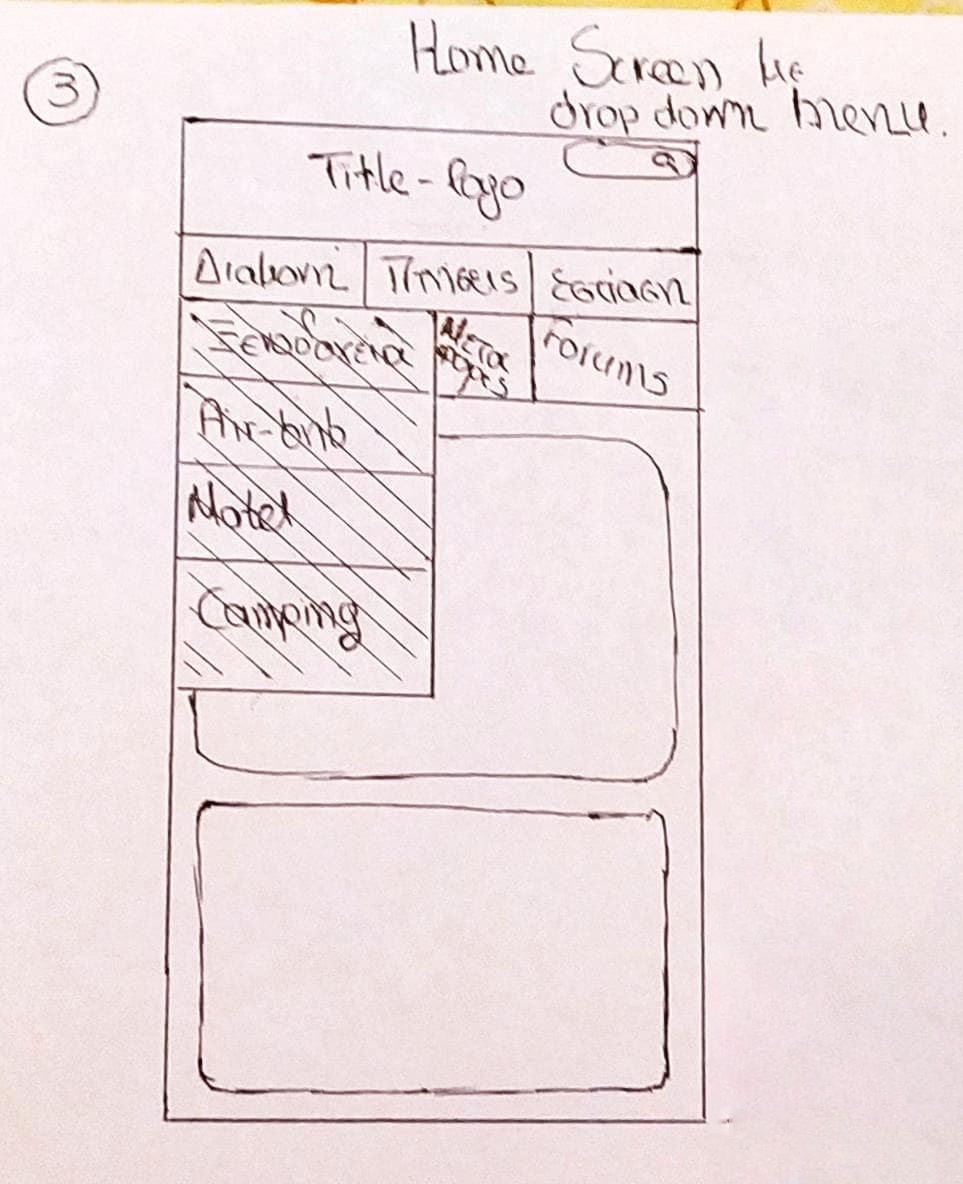 ③
Home Screen με
drop down menu.
Title-logo
Διαμονή Πτήσεις Εστίαση
Ξενοδοχεία Μετα Forums
φορές
Air-bnb
Motel
Camping